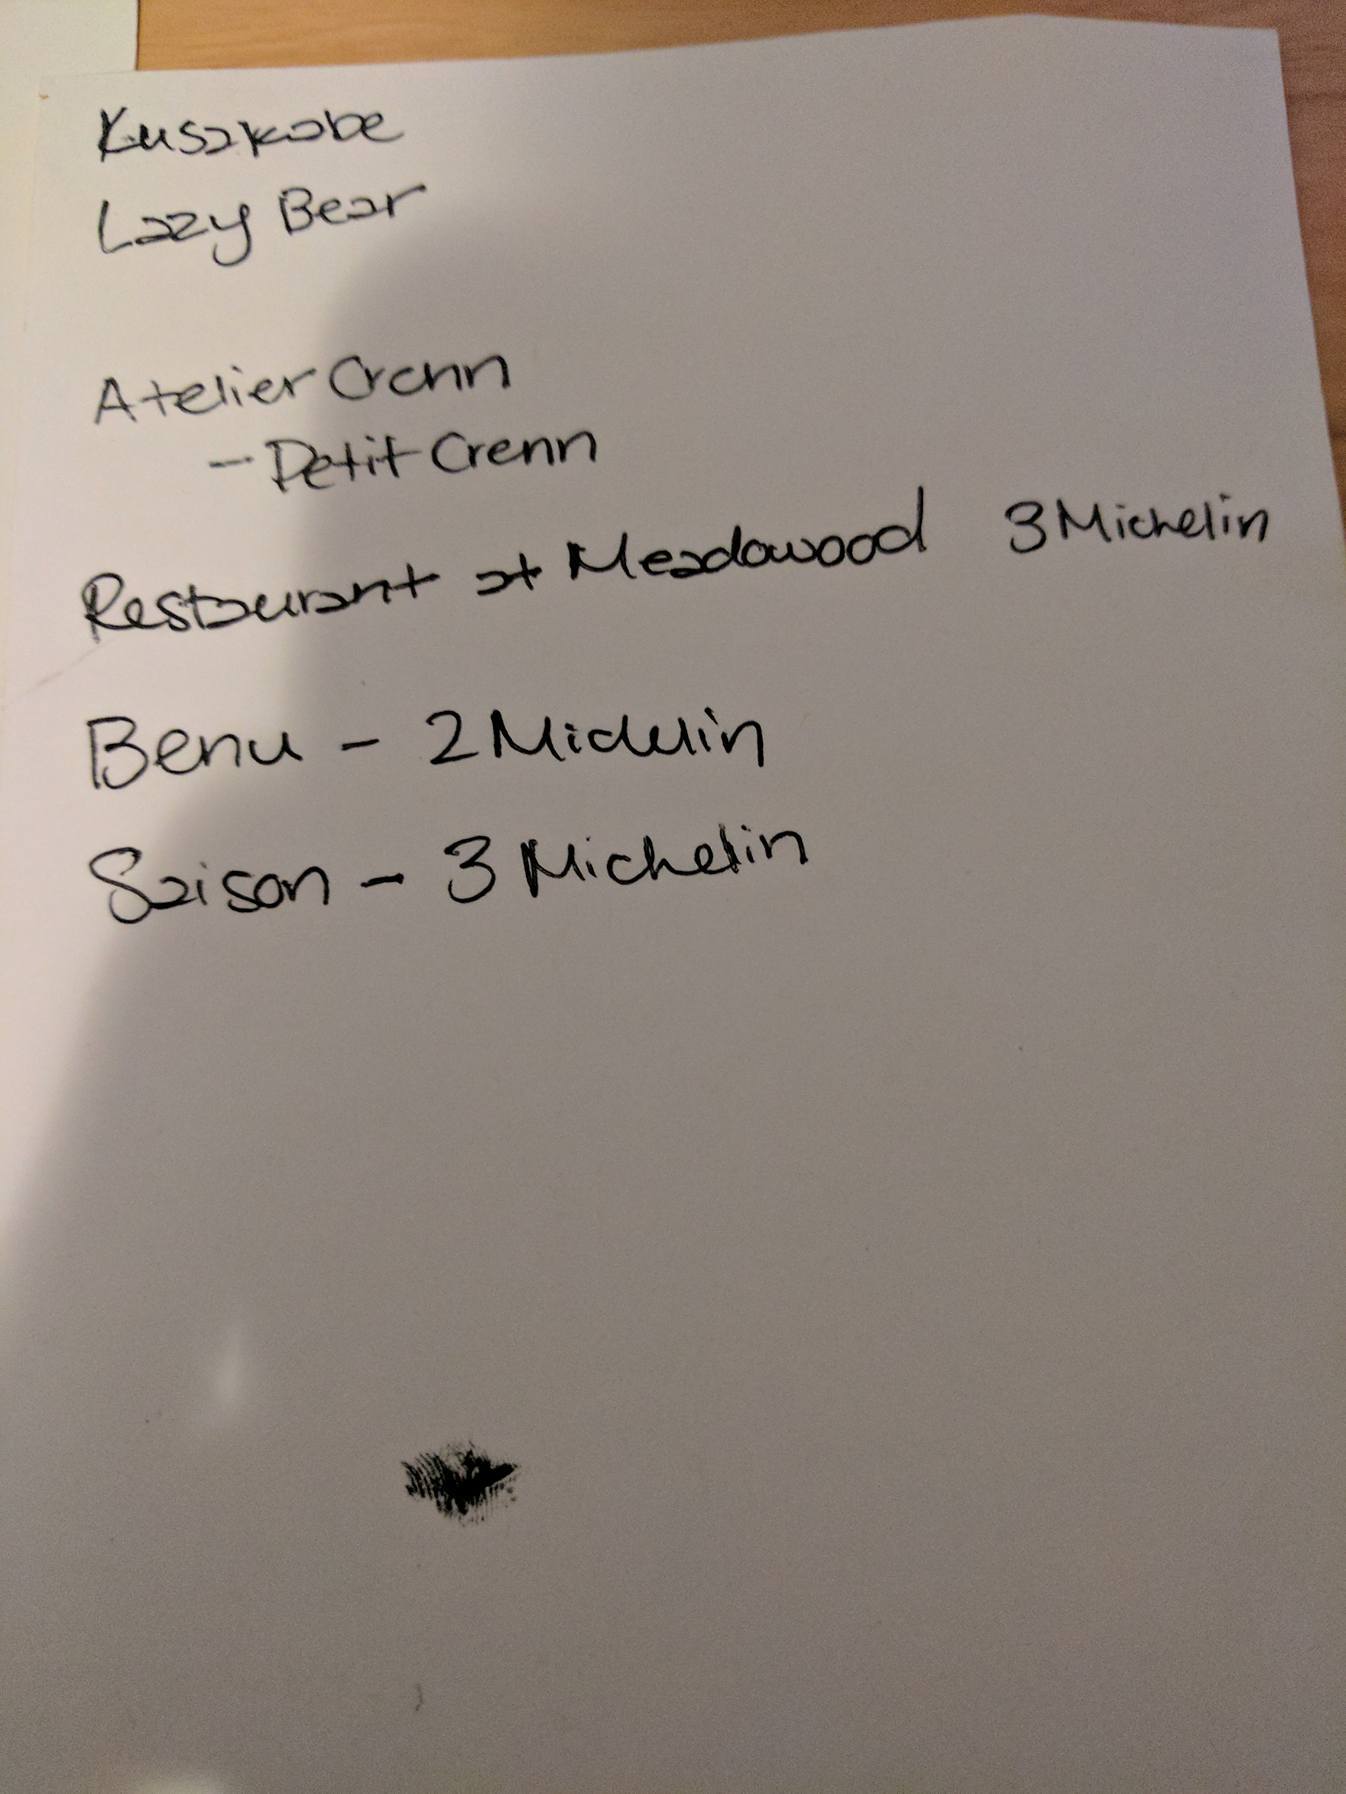 Kusakabe
Lazy Bear
Atelier Crenn
- Petit Crenn
Restaurant at Meadowood 3 Michelin
Benu - 2 Michelin
Saison - 3 Michelin